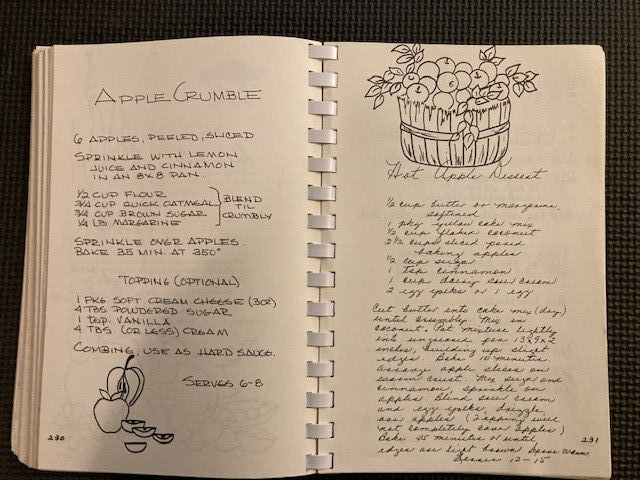 APPLE CRUMBLE
6 APPLES, PEELED, SLICED
SPRINKLE WITH LEMON
JUICE AND CINNAMON
IN AN 8X8 PAN.
1/2 CUP FLOUR
3/4 CUP QUICK OATMEAL
3/4 CUP BROWN SUGAR
1/4 LB MARGARINE
BLEND
TIL
CRUMBLY
SPRINKLE OVER APPLES.
BAKE 35 MIN. AT 350°
TOPPING (OPTIONAL)
1 PKG SOFT CREAM CHEESE (3OZ)
4 TBS POWDERED SUGAR
1 TSP. VANILLA
4 TBS. (OR LESS) CREAM
COMBINE, USE AS HARD SAUCE.
SERVES 6-8
230
Hot Apple Dessert
1/2 cup butter or margarine
softened
1 pkg yellow cake mix
1/2 cup flaked coconut
2 1/2 cups sliced pared
baking apples
1/2 cup sugar
1 tsp cinnamon
1 cup dairy sour cream
2 egg yolks or 1 egg
Cut butter into cake mix (dry)
until crumbly. Mix in
coconut. Pat mixture lightly
into ungreased pan 13x9x2
inches, building up slight
edges. Bake 10 minutes.
Arrange apple slices on
warm crust. Mix sugar and
cinnamon, sprinkle on
apples Blend sour cream
and egg yolks, drizzle
over apples (Topping will
not completely cover apples)
Bake 25 minutes or until
edges are light brown Serve warm
Serves 12-15
231